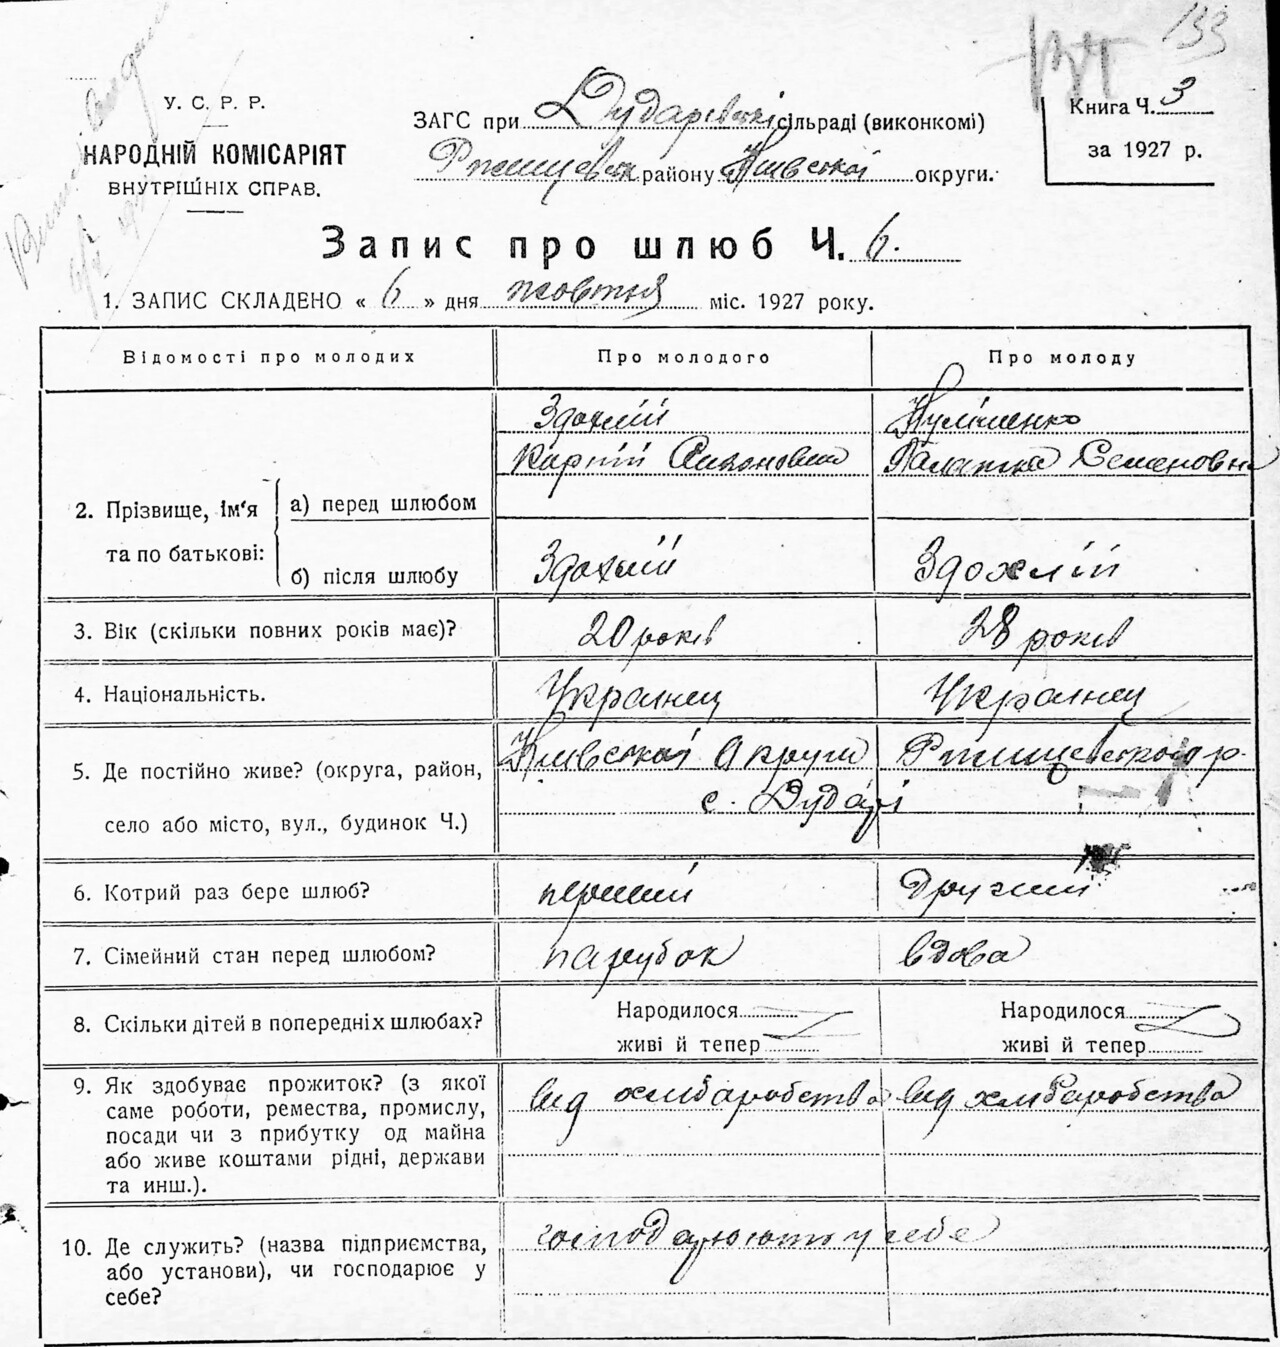 133
У. С. Р. Р.
НАРОДНІЙ КОМІСАРІЯТ
ВНУТРІШНІХ СПРАВ.
ЗАГС при Дударівскі сільраді (виконкомі)
Ржищевськ району Київської округи.
Книга Ч. 3
за 1927 р.
Запис про шлюб Ч. 6.
1. ЗАПИС СКЛАДЕНО « 6 » дня жовтня міс. 1927 року.
Відомості про молодих Про молодого Про молоду
2. Прізвище, ім'я та по батькові:
а) перед шлюбом
Здохлій Куліченко
Карпій Палажка Семеновна
б) після шлюбу Здохлій Здохлій
3. Вік (скільки повних років має)? 20 років 28 років
4. Національність. Украінец Украінец
5. Де постійно живе? (округа, район, Київської Округи Ржищевского р.
село або місто, вул., будинок Ч.) с. Дударі
6. Котрий раз бере шлюб? перший другий
7. Сімейний стан перед шлюбом? парубок вдова
8. Скільки дітей в попередніх шлюбах? Народилося Народилося
живі й тепер живі й тепер
9. Як здобуває прожиток? (з якої вид хліборобства вид хліборобства
саме роботи, ремества, промислу,
посади чи з прибутку од майна
або живе коштами рідні, держави
та инш.).
10. Де служить? (назва підприємства, господарюють у себе
або установи), чи господарює у
себе?